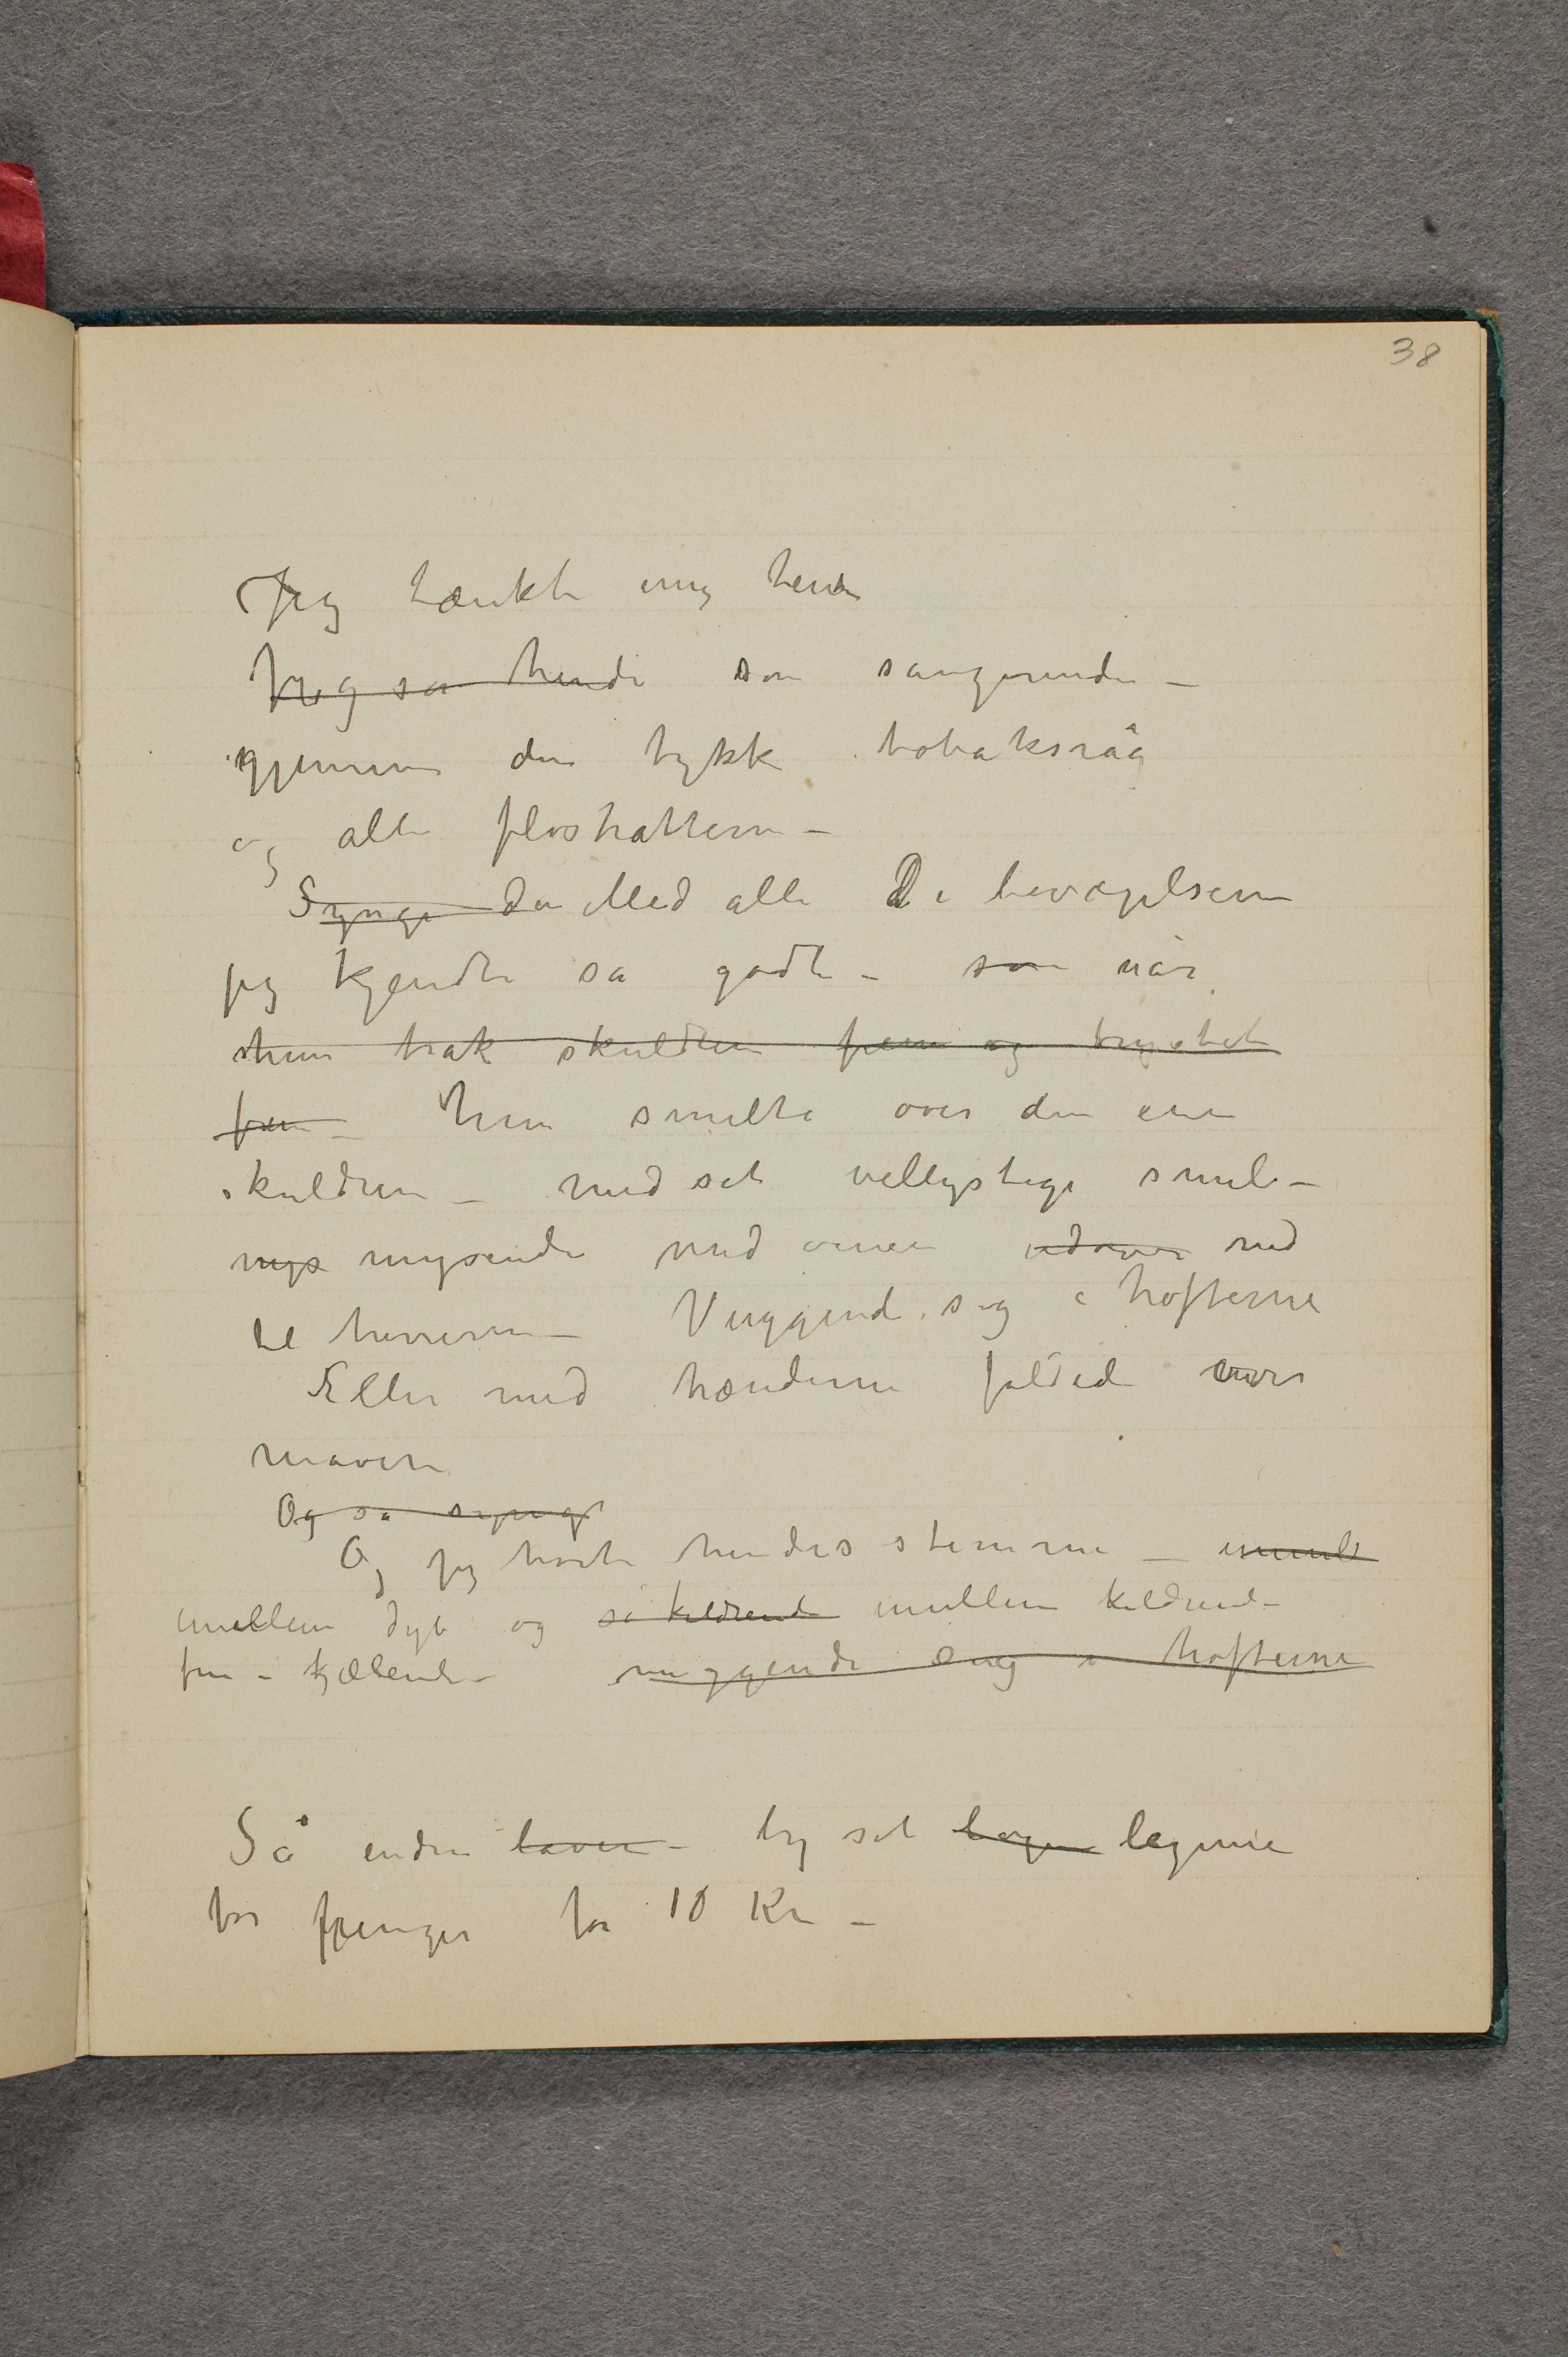 38
Jeg tænkte mig hende
Jeg så hende som sangerinde –
gjennem den tykke tobaksråg
og alle floshattene –
Synge da Med alle De bevægelserne
jeg kjendte så godt – som når
hun trak skuldren frem og brystet
frem – hun smilte over den ene
skuldren – med sit vellystige smil –
mys mysende med øinene udover ned
til herrerne – Vuggende sig i hofterne
Eller med hænderne foldede over
maven
Og så synge
Og jeg hørte hendes stemme – imell
imellem dyb og så kildrende imellem kildrende
fin – kjælende – vuggende sig i hofterne
Så endnu lavere – by sit legem legeme
for penger for 10 Kr –